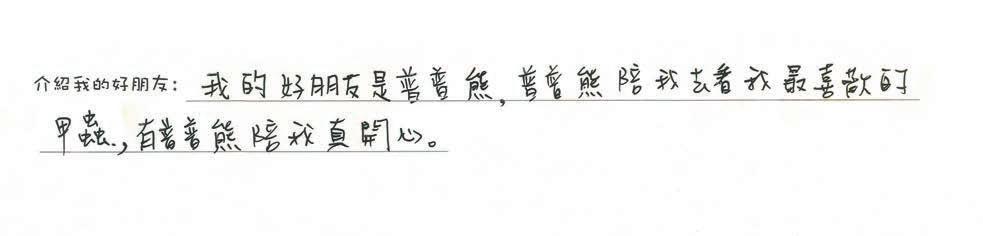 介紹我的好朋友：我的好朋友是普普熊,普普熊陪我去看我最喜歡的
甲蟲,有普普熊陪我真開心。